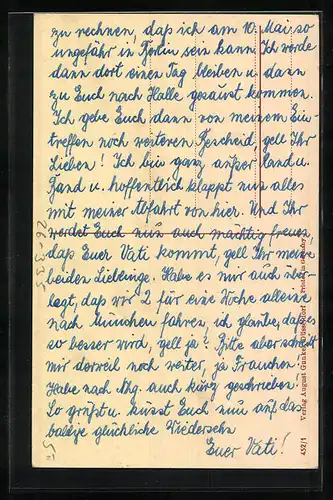 zu rechnen, daß ich am 10. Mai so
ungefähr in Berlin sein kann. Ich werde
dann dort einen Tag bleiben u. dann
zu Euch nach Halle gesaust kommen.
Ich gebe Euch dann von meinem Ein-
treffen noch weiteren Bescheid gell Ihr
Lieben! Ich bin ganz außer Rand u.
Band u. hoffentlich klappt nun alles
mit meiner Abfahrt von hier. Und Ihr
werdet Euch nun auch mächtig freuen,
daß Euer Vati kommt, gell Ihr meine
beiden Lieblinge. Habe es mir auch über-
legt, daß wir 2 für eine Woche alleine
nach München fahren, ich glaube, daß es
so besser wird, gell ja? Bitte aber schreibt
mir derweil noch weiter, ja Frauchen!
Habe nach auch kurz geschrieben.
So grüßt u. küsst Euch nun auf das
baldige glückliche Wiedersehn
Euer Vati!
Verlag August Gunkel, Düsseldorf
452/1